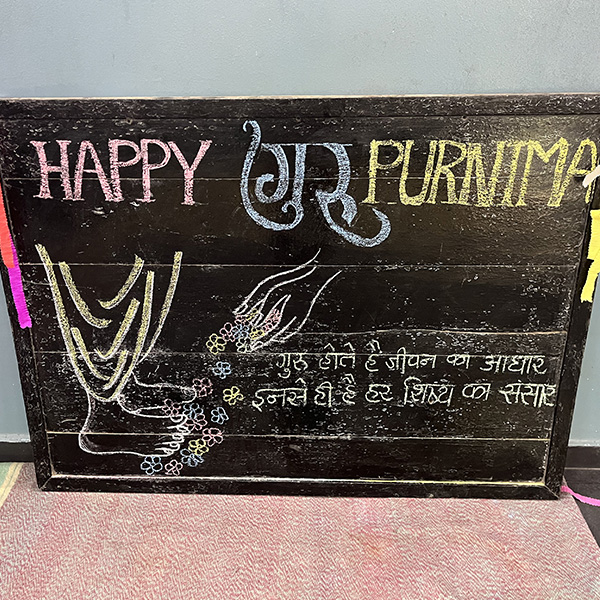 HAPPY गुरू PURNIMA
गुरू होते है जीवन का आधार
इनसे ही है हर शिष्य का संसार